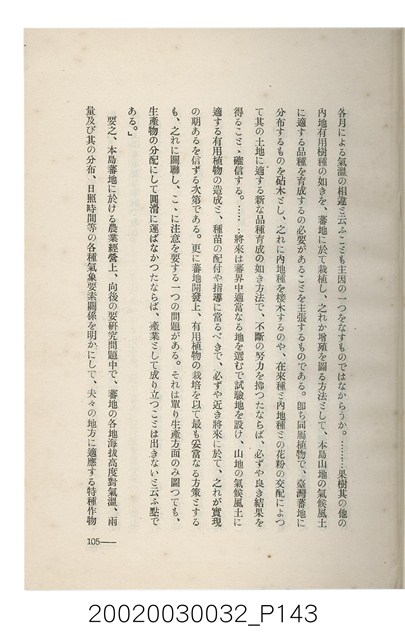 各月による氣溫の相違と云ふことも主因の一つをなすものではなからうか。………果樹其の他の
內地有用樹種の如きを、蕃地に於て栽植し、之れが增殖を圖る方法として、本島山地の氣候風土
に適する品種を育成するの必要があることを主張するものである。卽ち同屬植物で、臺灣蕃地に
分布するものを砧木とし、之れに內地種を接木するのや、在來種と內地種との花粉の交配によつ
て其の土地に適する新な品種育成の如き方法で、不斷の努力を拂つたならば、必ずや良き結果を
得ること、確信する。……將來は蕃界中適當なる地を選むで試驗地を設け、山地の氣候風土に
適する有用植物の造成と、種苗の配付や指導に當るべきで、必ずや近き將來に於て、之れが實現
の期あるを信ずる次第である。更に蕃地開發上、有用植物の栽培を以て最も妥當なる方策とする
も、之れに關聯し、こゝに注意を要する一つの問題がある。それは單り生產方面のみ圖つても、
生產物の分配にして圓滑に運ばなかつたならば、產業として成り立つことは出きないと云ふ點で
ある。」
要之、本島蕃地に於ける農業經營上、向後の要硏究問題中で、蕃地の各地海拔高度對氣溫、雨
量及び其の分布、日照時間等の各種氣象要素關係を明かにして、夫々の地方に適應する特種作物
105——
20020030032_P143